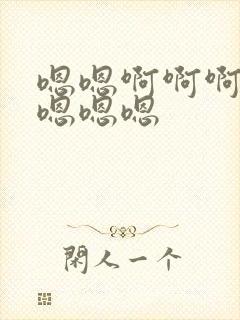 嗯嗯啊啊啊
嗯嗯嗯
閑人一个